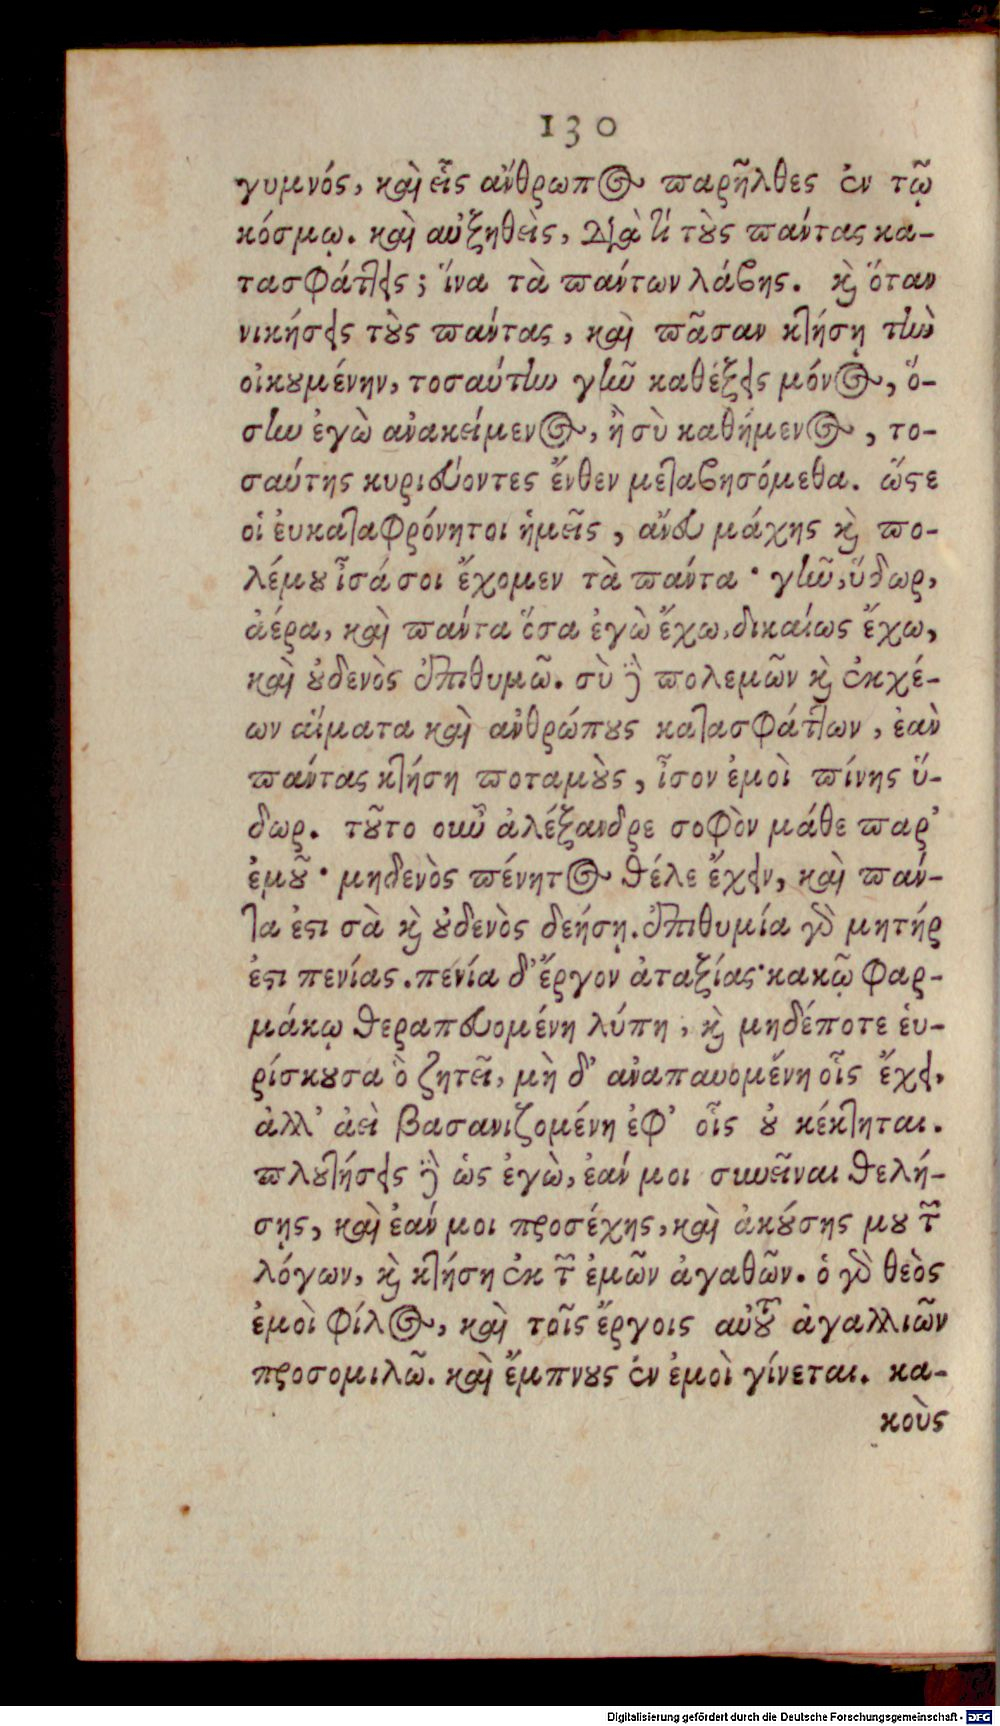 130
γυμνός, καὶ εἷς ἄνθρωπος παρῆλθες ἐν τῷ
κόσμῳ. καὶ αὐξηθεὶς, διὰ τί τοὺς πάντας κα-
τασφάττεις; ἵνα τὰ πάντων λάβης. καὶ ὅταν
νικήσεις τοὺς πάντας, καὶ πᾶσαν κτήσῃ τὴν
οἰκουμένην, τοσαύτην γῆν καθέξεις μόνος, ὅ-
σην ἐγὼ ἀνακείμενος, ἢ σὺ καθήμενος, το-
σαύτης κυριεύοντες ἔνθεν μεταβησόμεθα. ὥστε
οἱ ἐυκαταφρόνητοι ἡμεῖς, ἄνευ μάχης καὶ πο-
λέμου ἶσά σοι ἔχομεν τὰ πάντα· γῆν, ὕδωρ,
ἀέρα, καὶ πάντα ὅσα ἐγὼ ἔχω, δικαίως ἔχω,
καὶ οὐδενὸς ἐπιθυμῶ. σὺ δὲ πολεμῶν καὶ ἐκχέ-
ων αἵματα καὶ ἀνθρώπους κατασφάττων, ἐὰν
πάντας κτήσῃ ποταμοὺς, ἶσον ἐμοὶ πίνης ὕ-
δωρ. τοῦτο οὖν ἀλέξανδρε σοφὸν μάθε παρ'
ἐμοῦ· μηδενὸς πένητος θέλε ἔχειν, καὶ πάν-
τα ἐστι σὰ καὶ οὐδενὸς δεήσῃ. ἐπιθυμία γὰρ μητήρ
ἐστι πενίας. πενία δ' ἔργον ἀταξίας· κακῷ φαρ-
μάκῳ θεραπευομένη λύπη, καὶ μηδέποτε ἑυ-
ρίσκουσα ὃ ζητεῖ, μὴ δ' ἀναπαυομένη οἷς ἔχει,
ἀλλ' ἀεὶ βασανιζομένη ἐφ' οἷς οὐ κέκτηται.
πλουτήσεις δὲ ὡς ἐγὼ, ἐάν μοι συνεῖναι θελή-
σῃς, καὶ ἐάν μοι προσέχης, καὶ ἀκούσης μου τῶν
λόγων, καὶ κτήσῃ ἐκ τῶν ἐμῶν ἀγαθῶν. ὁ γὰρ θεὸς
ἐμοὶ φίλος, καὶ τοῖς ἔργοις αὐτοῦ ἀγαλλιῶν
προσομιλῶ. καὶ ἔμπνους ἐν ἐμοὶ γίνεται. κα-
κοὺς
Digitalisierung gefördert durch die Deutsche Forschungsgemeinschaft - DFG